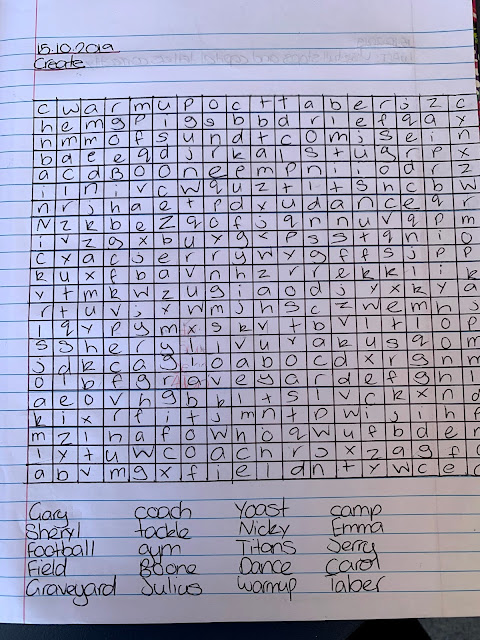 15.10.2019
Create
c w a r m u p o c t t a b e r j z c
h e m g p i g s b b d r i e f q a x
n m m o f s u n d t c o m j s e i n
b a e e q d j r k a l s t u g r p x
a c d B o o n e e m p n i i o d r z
i l n i v c w q u z t l t s h c b w
n r j h a e t p d x u d a n c e q r
N z k b e z q o f j q n n u v q p m
i v z g x b u y g k p s s t q h i o
c y a c j e r r y w x g f f s j p p
k u x f b a v n h z r r e k k l i k
y t m k w z u g i a o d j y x k y a
r t u v j x w m j h s c z w e m h j
l q y p y m x s k v t b v l t l o p
s s h e r y l i v u y a k u s q o m
j d k c a g l o a b o c d x r g n m
o l b f g r a v e y a r d e f g h i
a e o v h g b k l t s l v c k x n d
k i x r f i t j m n t p w i j i h f
m z l n a f o w h o q w u f b d e r
l y t u w c o a c h r s x z a g f o
a b v m g x f i e l d n t y w c e d
Gary coach Yoast camp
Sheryl tackle Nicky Emma
Football gym Titans Jerry
Field Boone Dance carol
Graveyard Julius warmup Taber